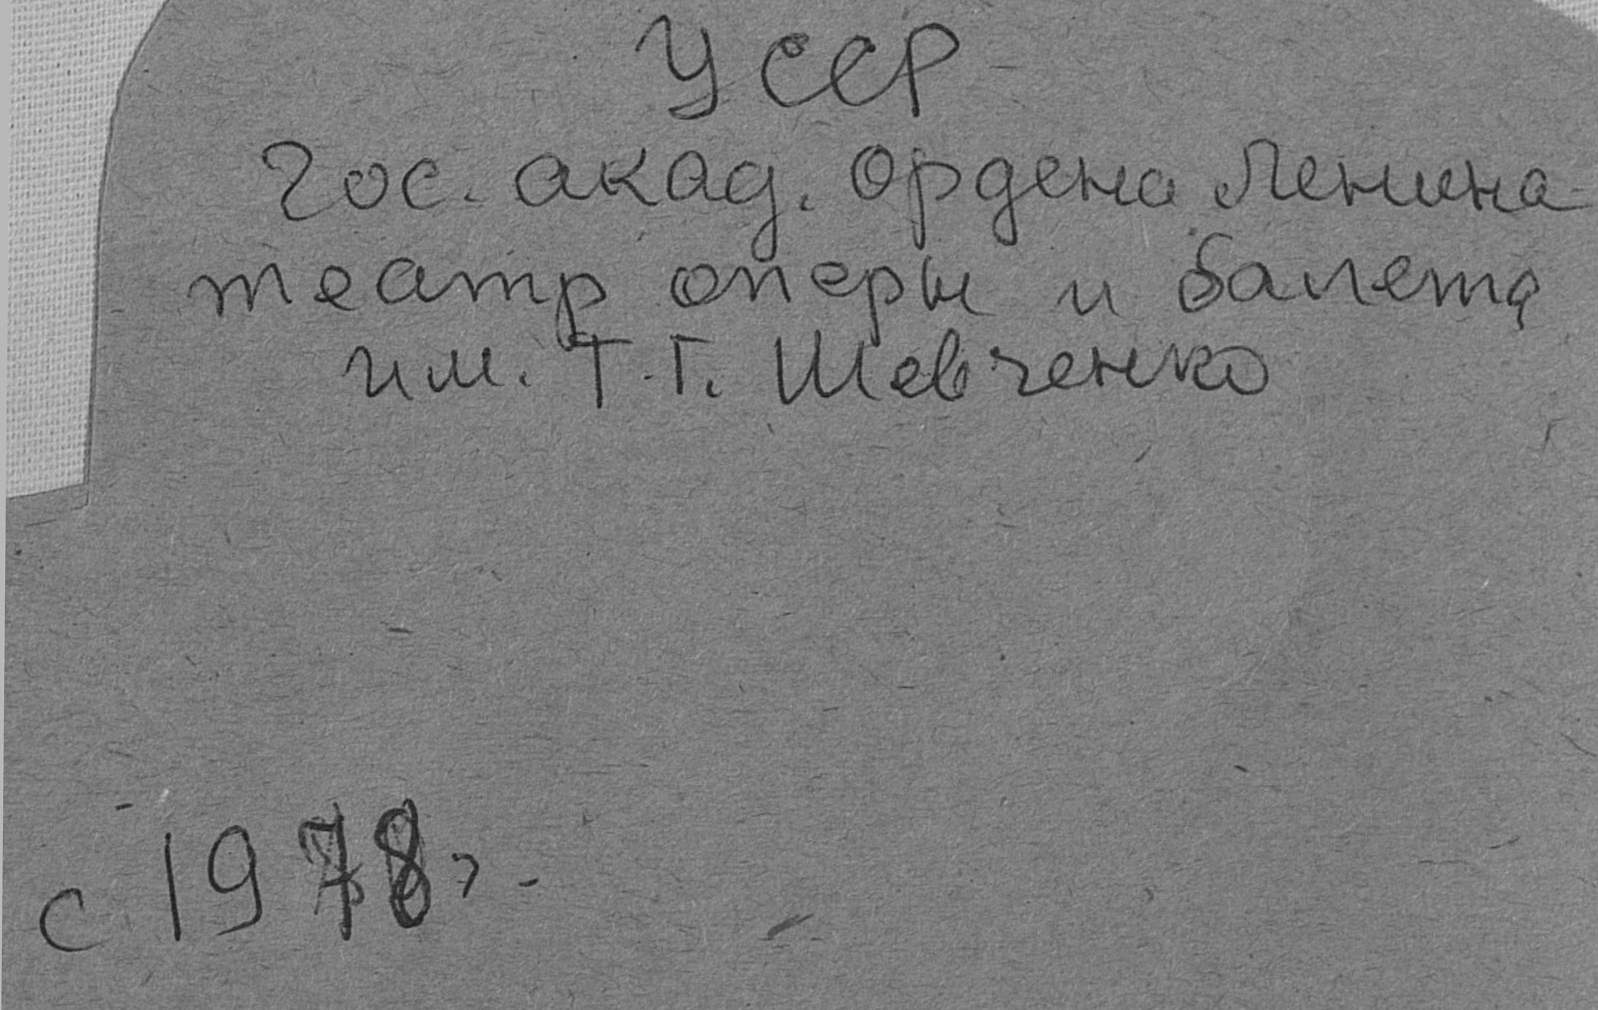 УССР
Гос. акад. ордена Ленина
театр оперы и балета
им. Т.Г. Шевченко
с 1978 г.